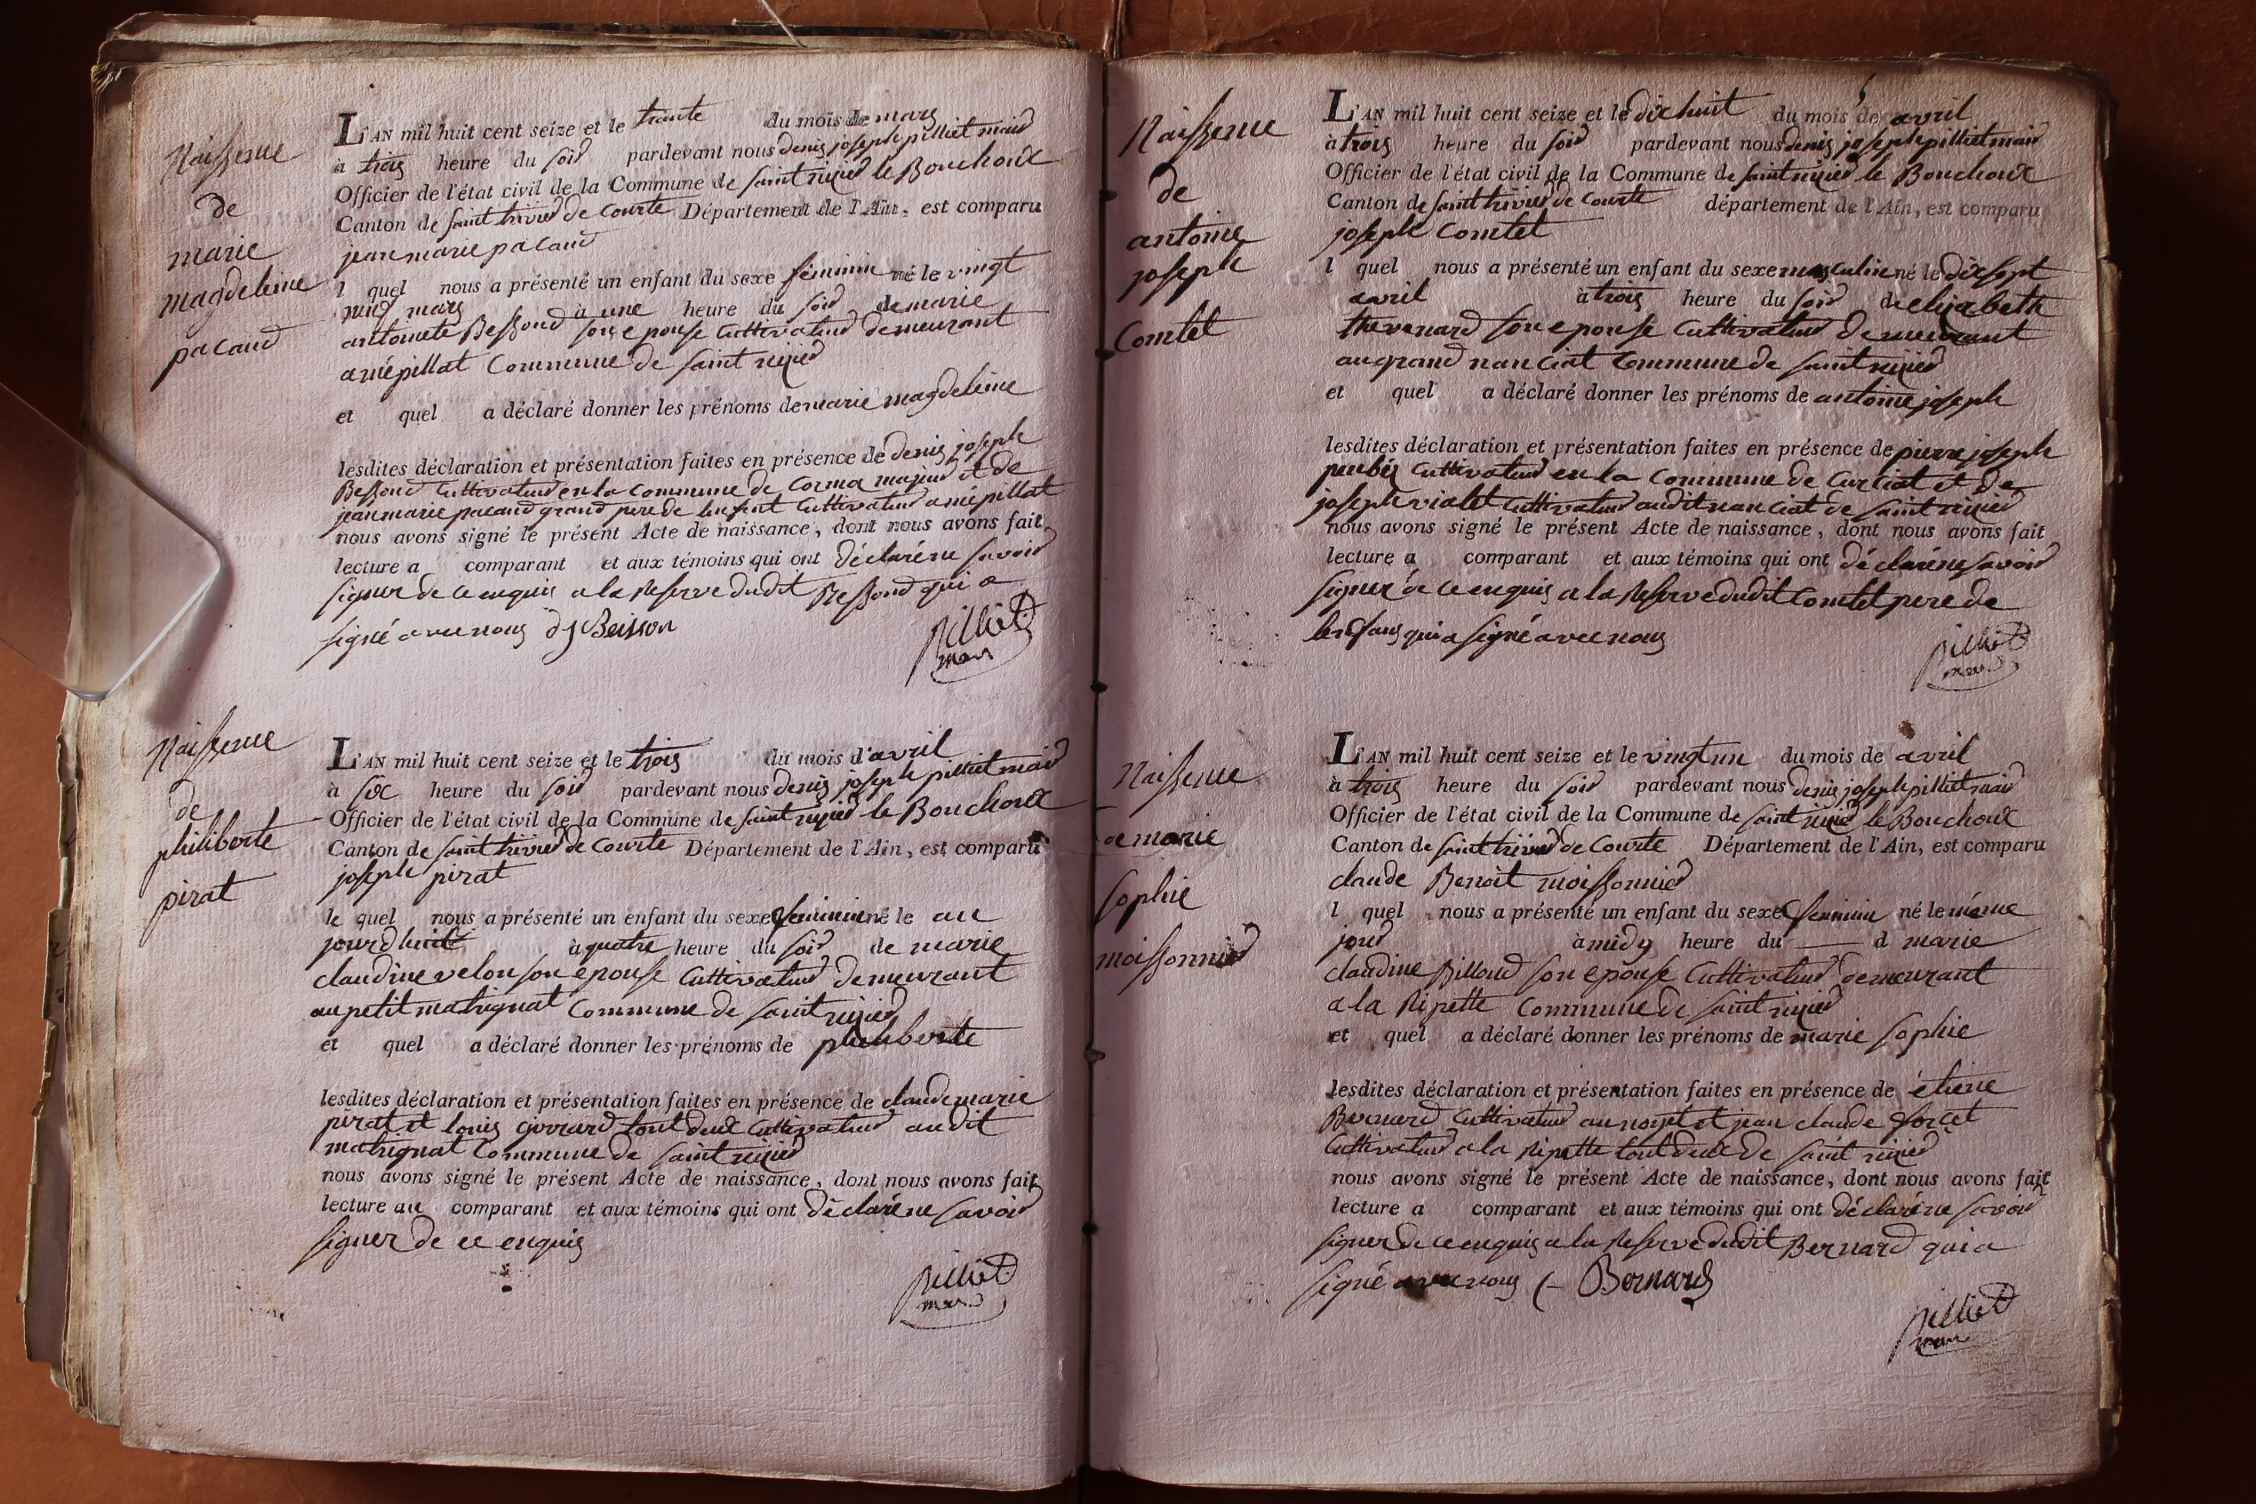 Naissence
de
marie
magdeleine
pacaud
L'AN mil huit cent seize et le trante du mois de mars
à trois heure du soir pardevant nous denis joseph pilliet maire
Officier de l'état civil de la Commune de saint nizier le Bouchoux
Canton de saint trivier de Courte Département de l'Ain, est comparu
jean marie pacaud
l quel nous a présenté un enfant du sexe féminin né le vingt
neuf mars à une heure du soir de marie
antoinete Bessond son epouse Cultivateur demeurant
a mépillat Commune de saint nizier
et quel a déclaré donner les prénoms de marie magdeleine
lesdites déclaration et présentation faites en présence de denis joseph
Bessond Cultivateur en la Commune de Cormoz majeur et de
jean marie pacaud grand pere de lenfent Cultivateur a mépillat
nous avons signé le présent Acte de naissance, dont nous avons fait
lecture a comparant et aux témoins qui ont déclaré ne savoir
signer de ce enquis a la Reserve dudit Bessond qui a
signé avec nous dj Beisson
pilliet
maire
Naissence
de
philiberte
pirat
L'AN mil huit cent seize et le trois du mois d'avril
à six heure du soir pardevant nous denis joseph pilliet maire
Officier de l'état civil de la Commune de saint nizier le Bouchoux
Canton de saint trivier de Courte Département de l'Ain, est comparu
joseph pirat
le quel nous a présenté un enfant du sexe feminin né le au
jourdhuit à quatre heure du soir de marie
claudine velon son epouse Cultivateur demeurant
au petit matrignat Commune de saint nizier
et quel a déclaré donner les prénoms de philiberte
lesdites déclaration et présentation faites en présence de claude marie
pirat et louis girrard tout deux Cultivateur audit
matrignat Commune de saint nizier
nous avons signé le présent Acte de naissance, dont nous avons fait
lecture au comparant et aux témoins qui ont déclaré ne savoir
signer de ce enquis
pilliet
maire
Naissence
de
antoine
joseph
Comtet
L'AN mil huit cent seize et le dix huit du mois de avril
à trois heure du soir pardevant nous denis joseph pilliet maire
Officier de l'état civil de la Commune de saint nizier le Bouchoux
Canton de saint trivier de Courte département de l'Ain, est comparu
joseph Comtet
l quel nous a présenté un enfant du sexe masculin né le dix sept
avril à trois heure du soir de elizabeth
thevenard son epouse Cultivateur demeurant
au grand nanciat Commune de saint nizier
et quel a déclaré donner les prénoms de antoine joseph
lesdites déclaration et présentation faites en présence de pierre joseph
Cultivateur en la Commune de Curciat et de
joseph vialet Cultivateur audit nanciat de saint nizier
nous avons signé le présent Acte de naissance, dont nous avons fait
lecture a comparant et aux témoins qui ont déclaré ne savoir
signer de ce enquis a la Reserve dudit Comtet pere de
lenfans qui a signé avec nous
pilliet
maire
Naissence
de marie
sophie
moissonnier
L'AN mil huit cent seize et le vingt un du mois de avril
à trois heure du soir pardevant nous denis joseph pilliet maire
Officier de l'état civil de la Commune de saint nizier le Bouchoux
Canton de saint trivier de Courte Département de l'Ain, est comparu
claude Benoit moissonnier
l quel nous a présenté un enfant du sexe feminin né le méme
jour à midy heure du d marie
claudine Billoud son epouse Cultivateur demeurant
a la Ripette Commune de saint nizier
et quel a déclaré donner les prénoms de marie sophie
lesdites déclaration et présentation faites en présence de étiene
Bernard Cultivateur au et jean claude
Cultivateur a la Ripette tout deux de saint nizier
nous avons signé le présent Acte de naissance, dont nous avons fait
lecture a comparant et aux témoins qui ont déclaré ne savoir
signer de ce enquis a la Reserve dudit Bernard qui a
signé avec nous Bernard
pilliet
maire